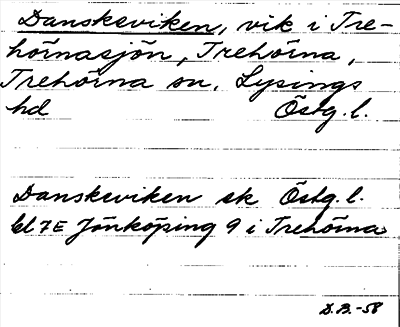 Danskeviken, vik i Tre-
hörnasjön, Trehörna,
Trehörna sn, Lysings
hd Östg. l.
Danskeviken ek Östg. l.
bl 7E Jönköping 9 i Trehörna
D.B.-58